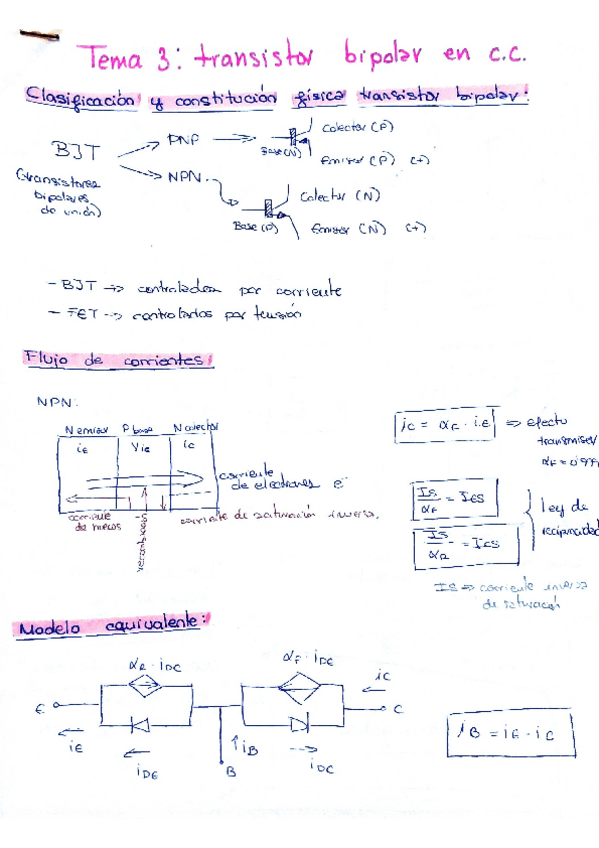 Tema 3: transistor bipolar en c.c.
Clasificación y constitución física transistor bipolar:
BJT
(transistores
bipolares
de unión)
PNP
Base(N)
Colector (P)
Emisor (P) (+)
NPN.
Base (P)
Colector (N)
Emisor (N) (+)
- BJT → controlador por corriente
- FET → controlarlos por tensión
Flujo de corrientes:
NPN:
N emisor P base N colector
iE
iC
corriente
de electrones e-
corriente
de huecos
recombinación
corriente de saturación inversa.
iC = αF · iE ⇒ efecto
transmisor
IS/αF = IES
IS/αR = ICS
Ley de
reciprocidad
IS ⇒ corriente inversa
de saturación
Modelo equivalente:
αR · iDC
αF · iDE
iC
E
C
iE
iDE
iB
B
iDC
iB = iE - iC